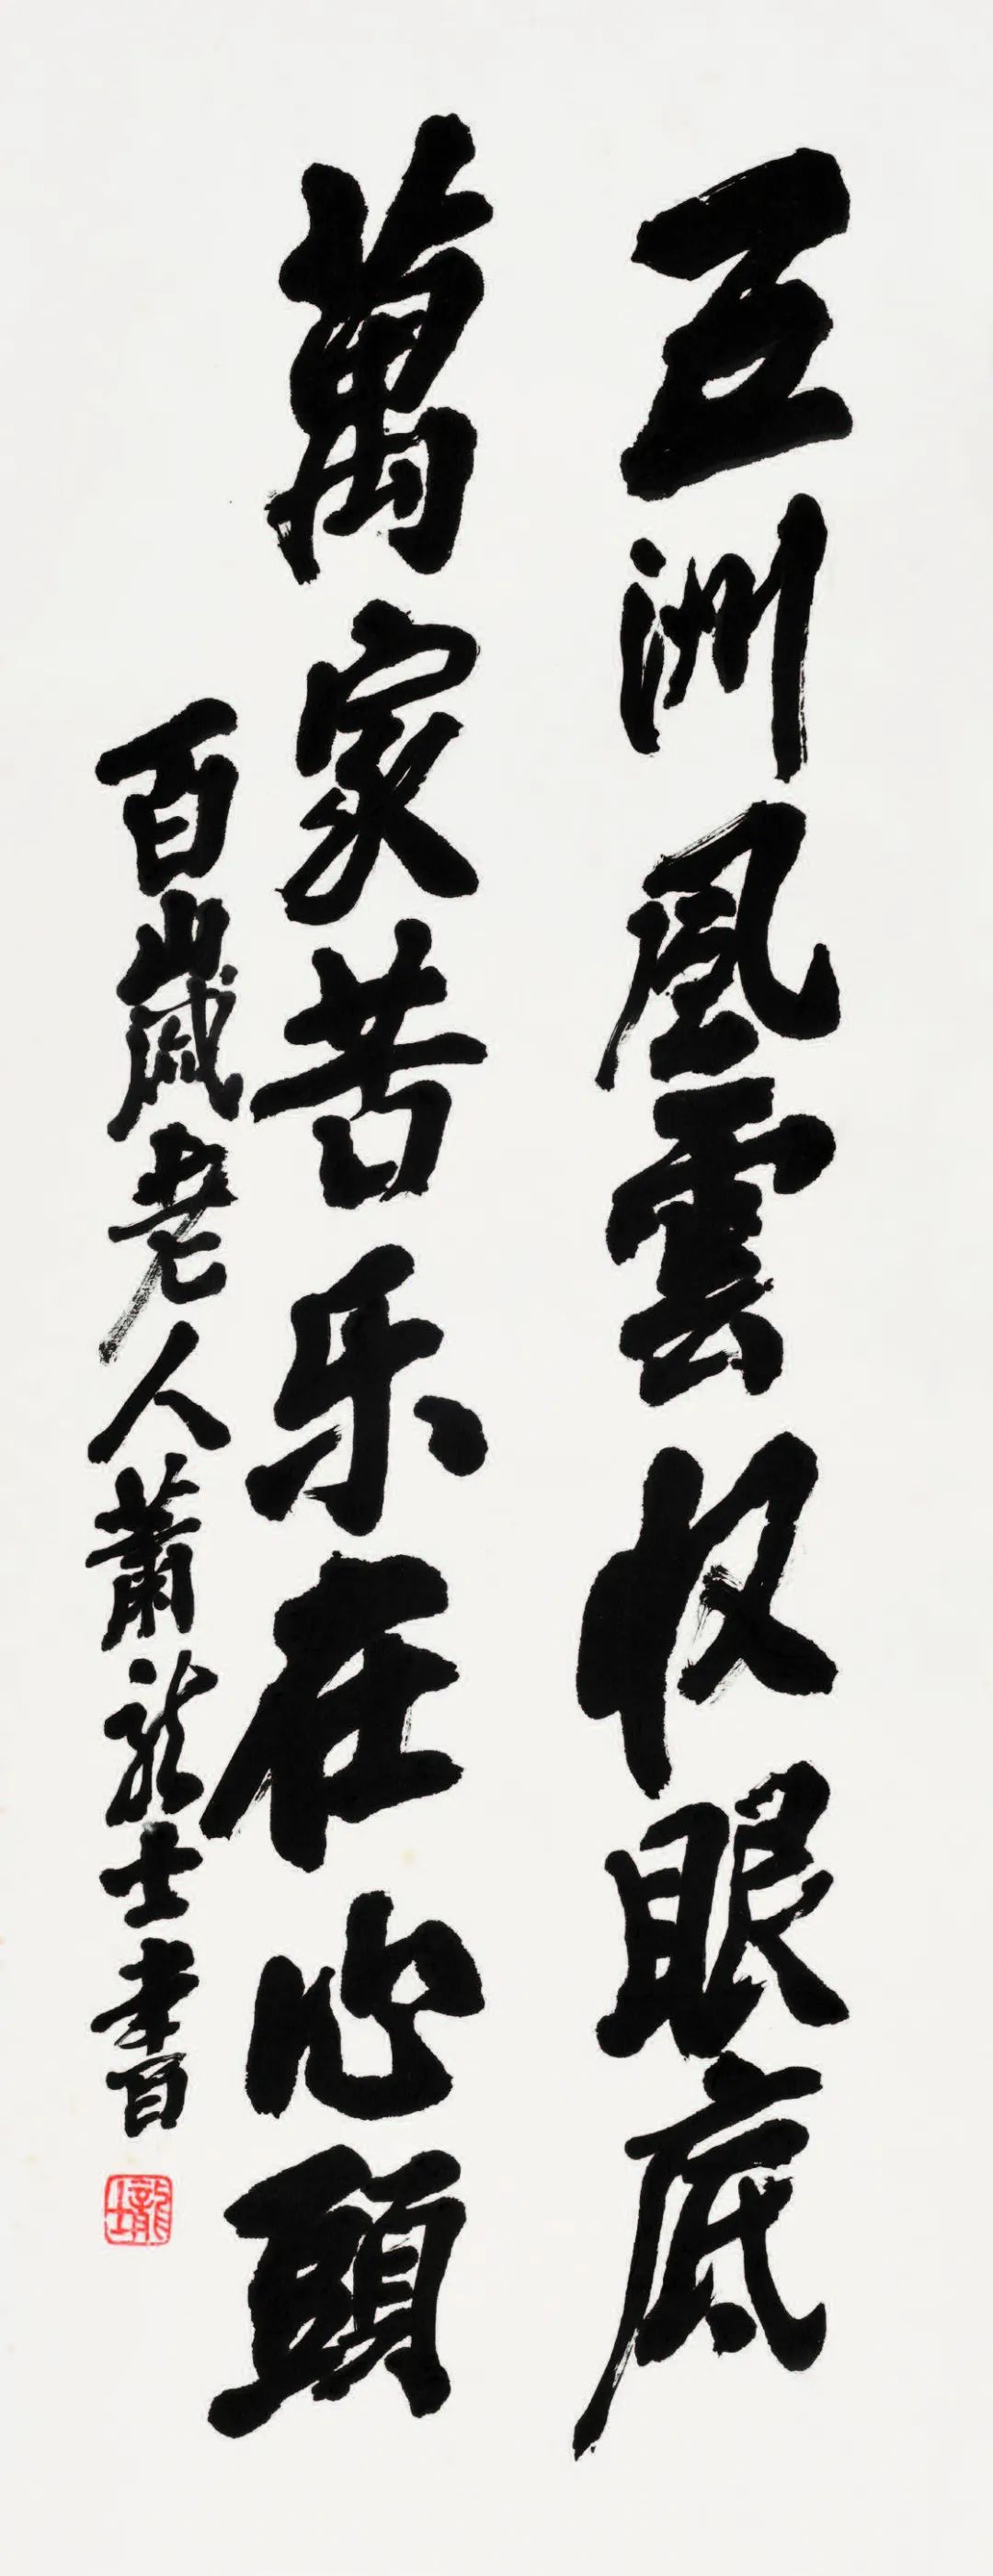 五洲風雲收眼底
萬家苦乐在心頭
百歲老人蕭龍士書
龍士